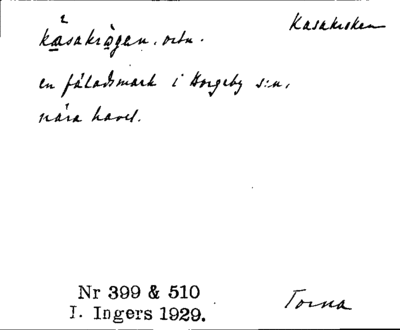 Kasakroken
kasakrågan. ortn.
en fäladsmark i Borgeby s:n,
nära havet.
Nr 399 & 510
I. Ingers 1929.
Torna